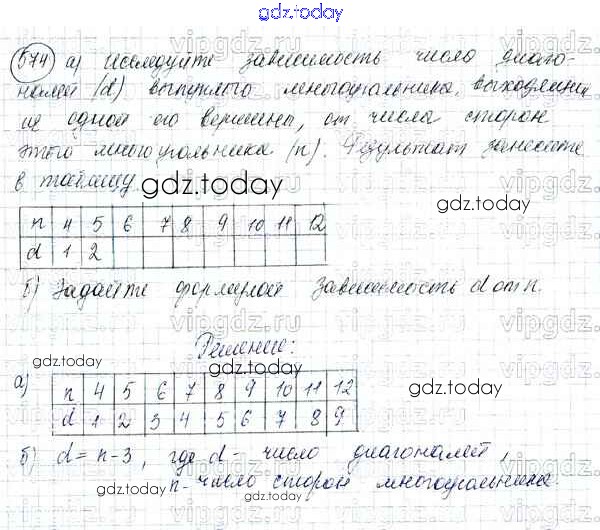 gdz.today
574 а) Исследуйте зависимость число диаго-
налей (d) выпуклого многоугольника, выходящих
из одной его вершины, от числа сторон
этого многоугольника (n). Результат занесите
в таблицу.
gdz.today
gdz.today
n 4 5 6 7 8 9 10 11 12
d 1 2
б) Задайте формулой зависимость d от n.
Решение:
gdz.today
gdz.today
а) n 4 5 6 7 8 9 10 11 12
d 1 2 3 4 5 6 7 8 9
б) d = n - 3, где d - число диагоналей,
n - число сторон многоугольника.
gdz.today
gdz.today
vipgdz.ru